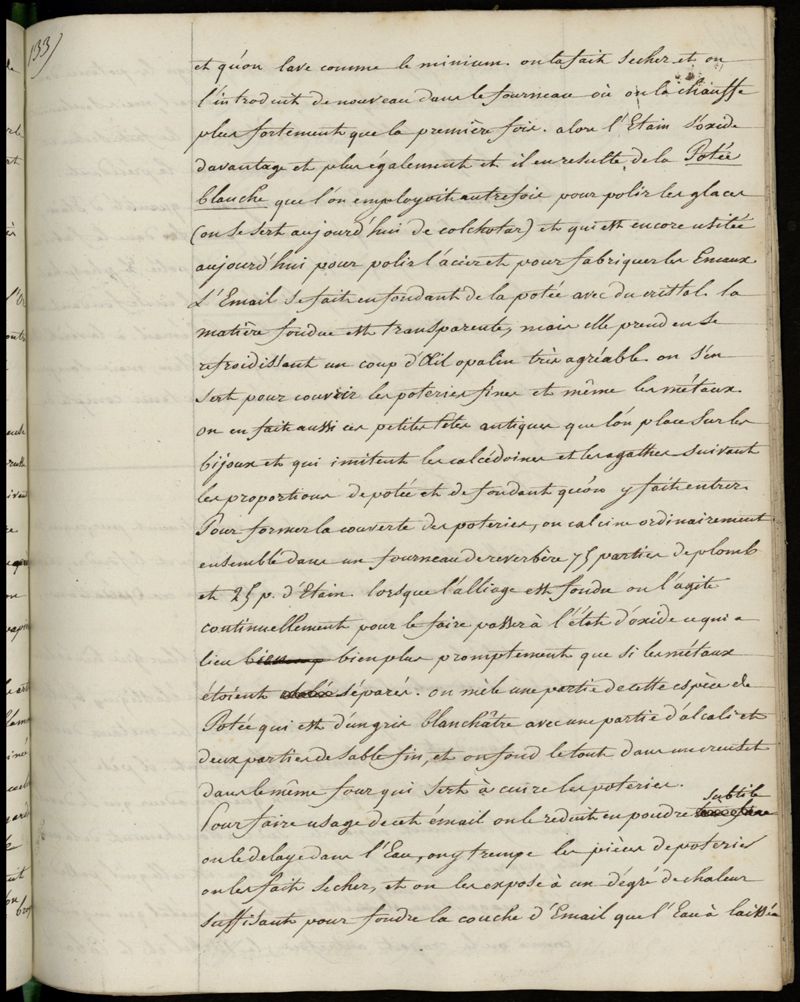 133)
et qu'on lave comme le minium. on la fait secher et on
l'introduit de nouveau dans le fourneau où on la chauffe
plus fortement que la première fois. alors l'Etain s'oxide
davantage et plus également et il en resulte de la Potée
blanche que l'on employoit autrefois pour polir les glaces
(on se sert aujourd'hui de colchotar) et qui est encore usitée
aujourd'hui pour polir l'acier et pour fabriquer les Emaux.
L'Email se fait en fondant de la potée avec du cristal. la
matière fondue est transparente, mais elle prend en se
refroidissant un coup d'Œil opalin très agréable. on s'en
sert pour couvrir les poteries fines et même les métaux.
on en fait aussi ces petites têtes antiques que l'on place sur les
bijoux et qui imitent les calcédoines et les agathes suivant
les proportions de potée et de fondant qu'on y fait entrer.
Pour former la couverte des poteries, on calcine ordinairement
ensemble dans un fourneau de reverbère 75 parties de plomb
et 25 p. d'Etain. lorsque l'alliage est fondu on l'agite
continuellement pour le faire passer à l'état d'oxide ce qui a
lieu bien plus promptement que si les métaux
étoient séparés. on mêle une partie de cette espèce de
Potée qui est d'un gris blanchâtre avec une partie d'alcali et
deux parties de sable fin, et on fond le tout dans un creuset
dans le même four qui sert à cuire les poteries.
Pour faire usage de cet émail on le reduit en poudre subtile
on le delaye dans l'Eau, on y trempe les pièces de poteries
on les fait secher, et on les expose à un dégré de chaleur
suffisant pour fondre la couche d'Email que l'Eau à laissée